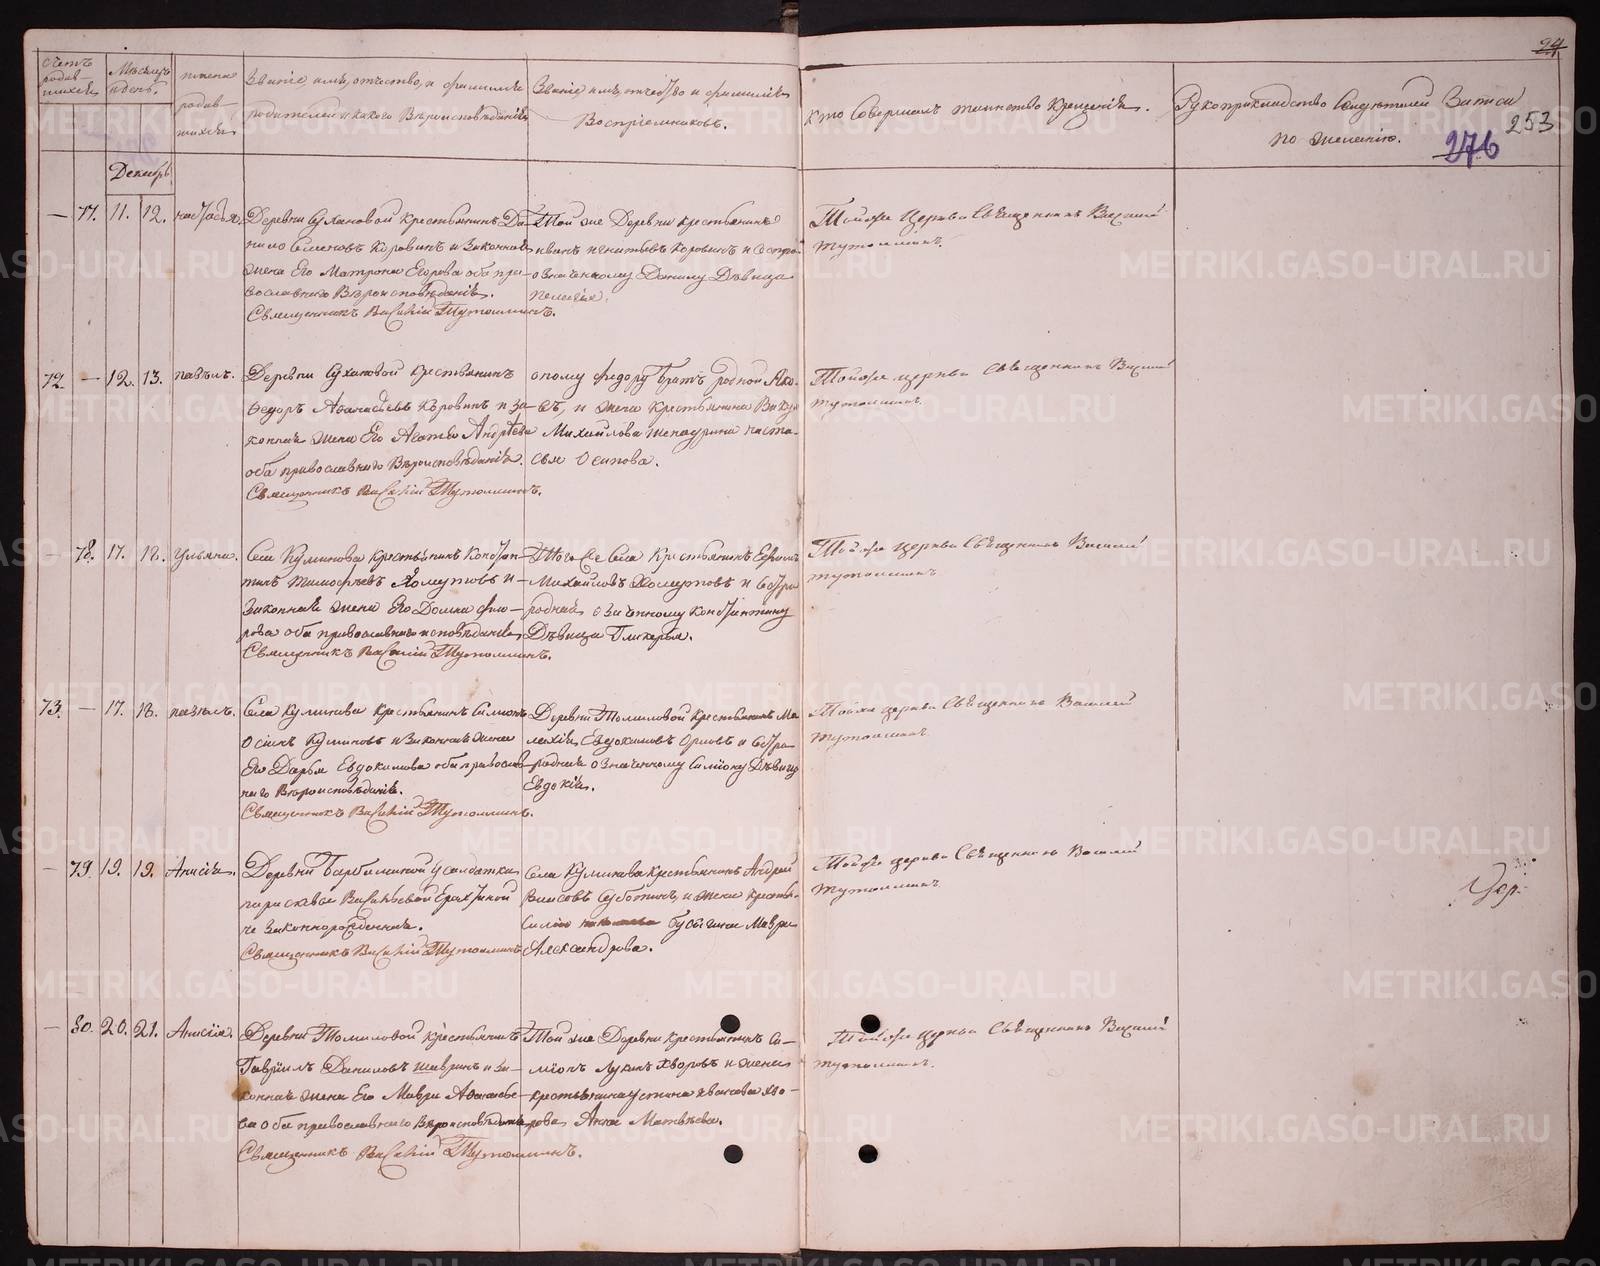 94
253
276
Счетъ родив-шихся
Мѣсяцъ и день.
имена родив-шихся
Званіе, имя, отчество, и фамилія
родителей и какого Вѣроисповѣданія
Званіе имя, отчество и фамилія
Воспріемниковъ.
кто Совершалъ таинство крещенія.
Рукоприкладство Свидѣтелей Записи
по желанію.
Декабрь
— 77. 11. 12. настасья.
Деревни Сухановой крестьянинъ Да-
нило Семеновъ Коровинъ и Законная
жена Его Матрона Егорова оба пра-
вославнаго Вѣроисповѣданія.
Священникъ Василій Тутолминъ.
Той же Деревни крестьянинъ
иванъ игнатьевъ Коровинъ и Сестра
означенному Данилу Дѣвица
пелагія.
Тойже Церкви Священникъ Василій
Тутолминъ.
72 — 12. 13. павелъ.
Деревни Сухановой крестьянинъ
Ѳедоръ Аѳанасьевъ Коровинъ и За-
конная жена Его Агафья Андрѣева
оба православнаго Вѣроисповѣданія.
Священникъ Василій Тутолминъ.
оному Федору братъ родной Яко-
въ, и жена крестьянина Викула
Михайлова настась-
я Осипова.
Тойже церкви Священникъ Василій
Тутолминъ.
— 78. 17. 18. ульяна.
Села Куликова крестьянинъ Констан-
тинъ Тимофѣевъ Хомутовъ и
Законная жена Его Домна фио-
рова оба православнаго исповѣданія
Священникъ Василій Тутолминъ.
Того же Села Крестьянинъ Ефимъ
Михайловъ Хомутовъ и Сестра
родная означенному Константину
Дѣвица Гликерья.
Тойже церкви Священникъ Василій
Тутолминъ
73. — 17. 18. павелъ.
Села Куликова Крестьянинъ Симіонъ
Осипъ Куликовъ и Законная жена
Его Дарья Евдокимова оба православ-
наго Вѣроисповѣданія.
Священникъ Василій Тутолминъ.
Деревни Томиловой Крестьянинъ Ма-
лахія Евдокимовъ Орловъ и Сестра
родная означенному Симіону Дѣвица
Евдокія.
Тойже церкви Священникъ Василій
Тутолминъ
— 79. 19. 19. Анисія.
Деревни у солдатки
парасковьи Васильевой
не законнорожденная.
Священникъ Василій Тутолминъ
Села Куликова крестьянинъ Андрей
Власовъ Суботинъ, и жена крестья-
Мавра
Александрова.
Тойже церкви Священникъ Василій
Тутолминъ
— 80. 20. 21. Анисія.
Деревни Томиловой крестьянинъ
Гавріилъ Даниловъ Шавринъ и За-
конная жена Его Мавра Аѳанасье-
ва оба православнаго Вѣроисповѣданія
Священникъ Василій Тутолминъ.
Той же Деревни крестьянинъ Си-
міонъ Лукинъ Хворовъ и жена
крестьянина устина иванова хво-
рова Анна Матвѣева.
Тойже церкви Священникъ Василій
Тутолминъ.
METRIKI.GASO-URAL.RU